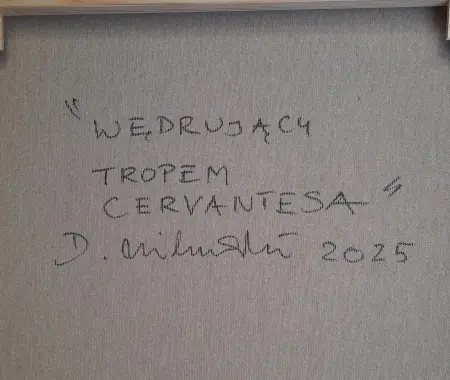 "WĘDRUJĄCY
TROPEM
CERVANTESA"
D. Miliński 2025